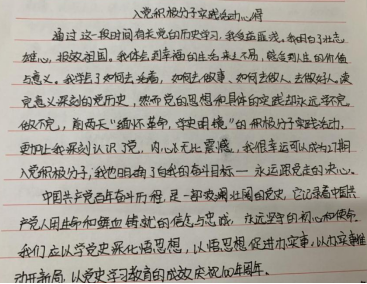 入党积极分子实践活动心得
通过这一段时间有关党的历史学习，我受益匪浅。我明白了壮志
雄心，报效祖国。我体会到幸福的生活来之不易，体会到人生的价值
与意义。我学会了如何去看，如何去做事，如何去做人，去做好人，
意义深刻的党历史，然而党的思想和具体的实践却永远学不完，
做不完，前两天“缅怀革命，学史明镜”的积极分子实践活动，
更加让我深刻认识了党，内心无比震感，我很幸运可以成为二期
入党积极分子，我也明确了自我的奋斗目标—永远跟党走的决心。
中国共产党百年奋斗历程，是一部波澜壮阔的党史，它记录着中国共
产党人用生命和鲜血铸就的信念与忠诚，永远坚守的初心和使命。
我们应以学党史深化悟思想，以悟思想促进办实事，以办实事推
动开新局，以党史学习教育的成效庆祝100年周年。